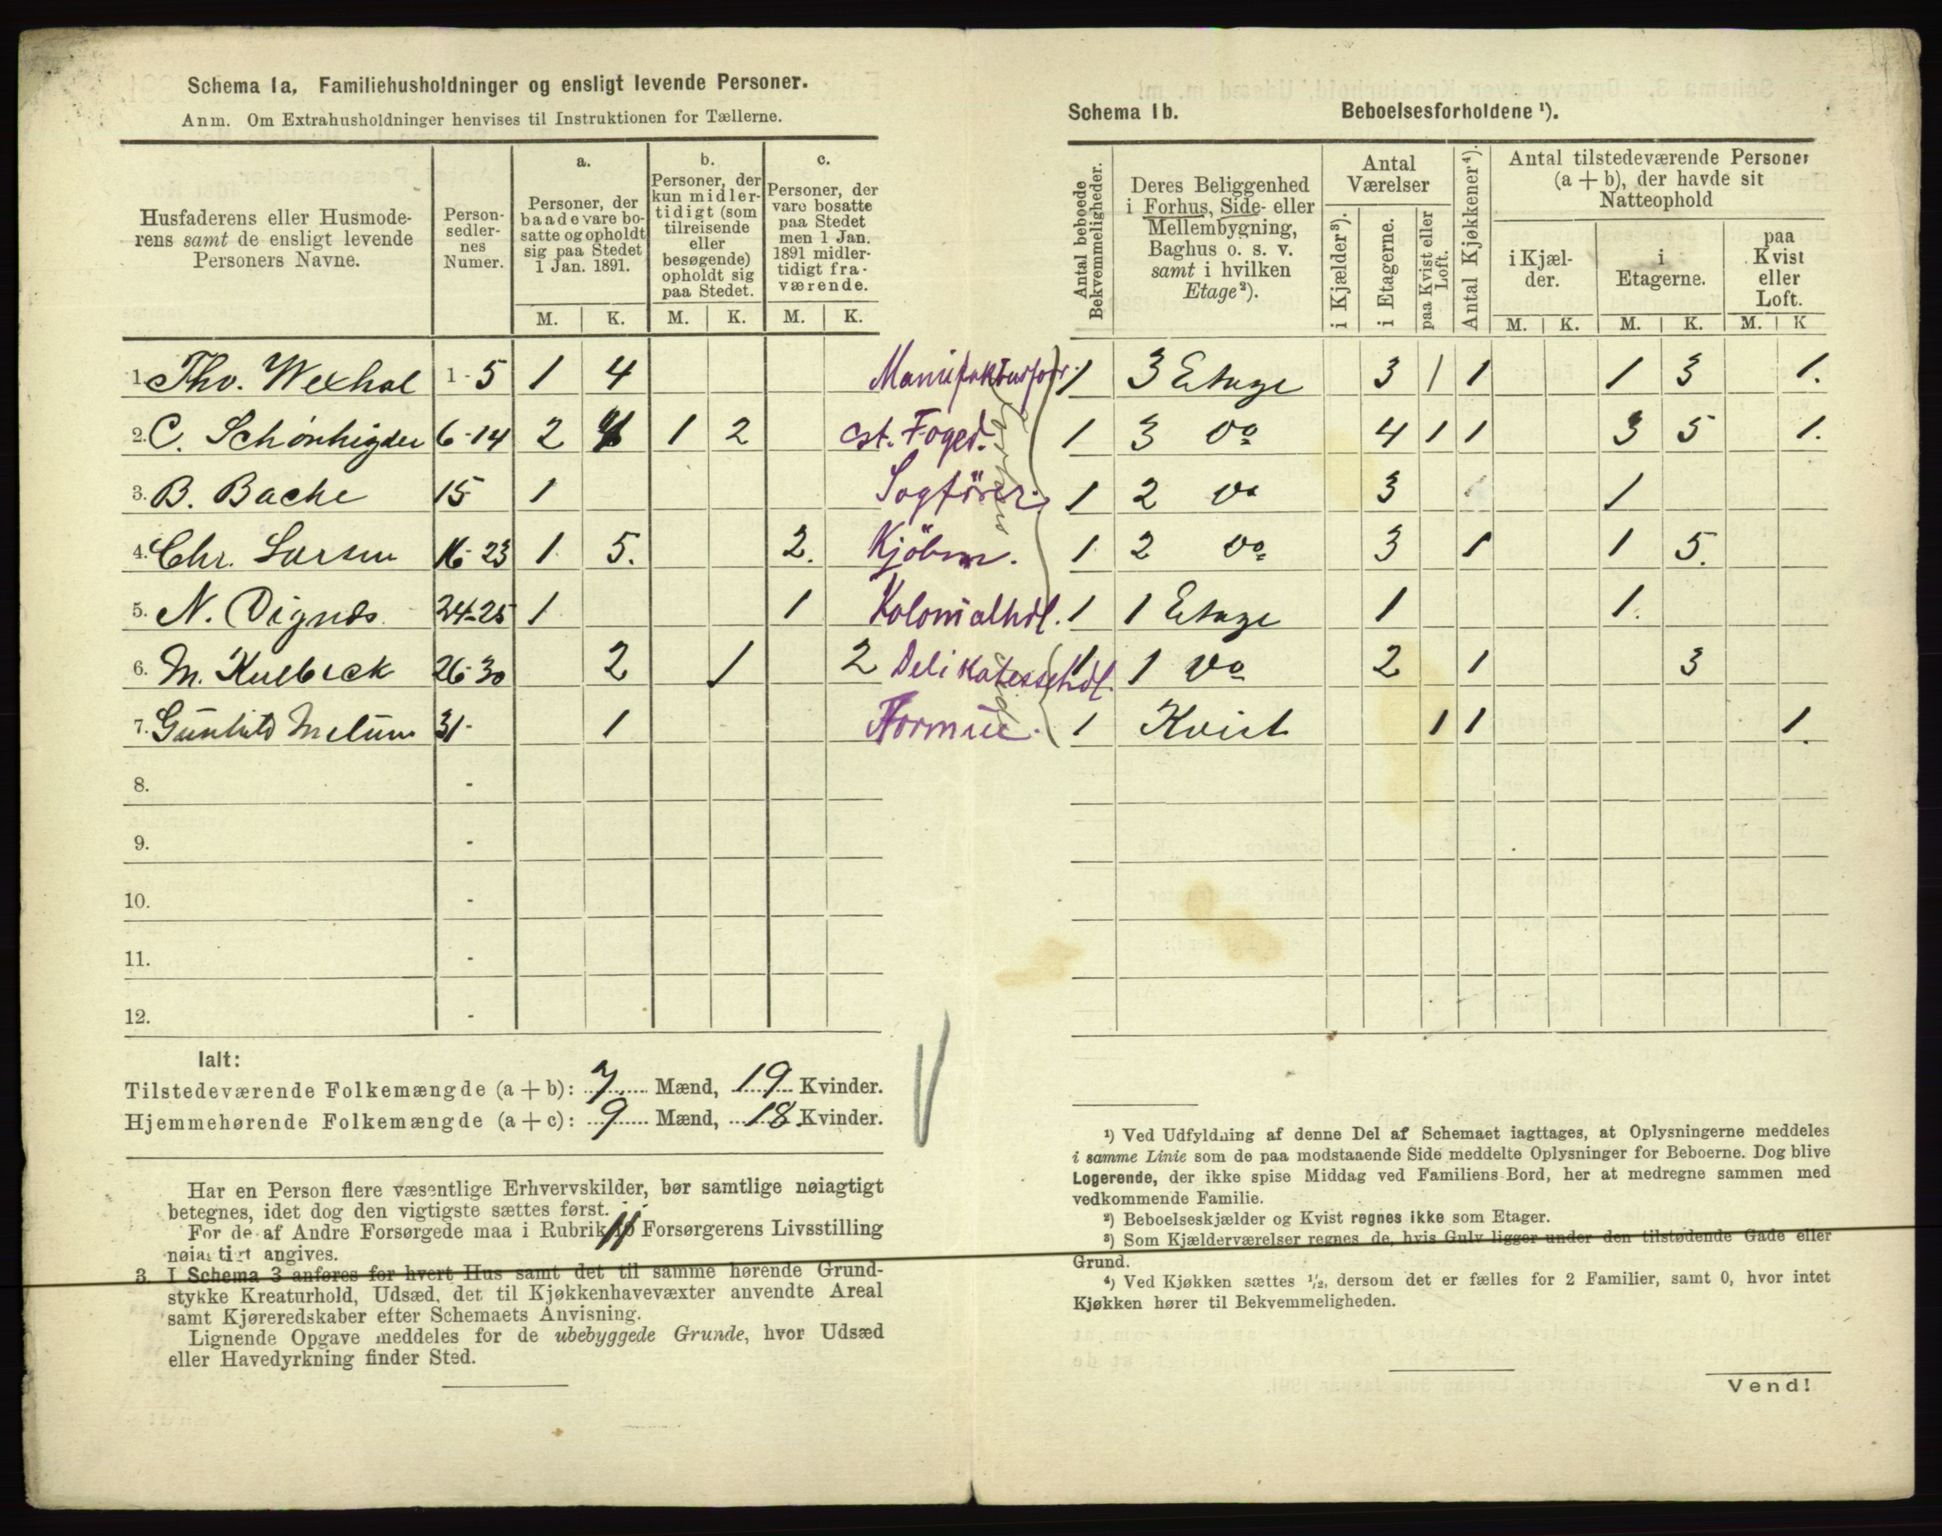 Schema 1a. Familiehusholdninger og ensligt levende Personer.
Anm. Om Extrahusholdninger henvises til Instruktionen for Tællerne.
Husfaderens eller Husmode-
rens samt de ensligt levende
Personers Navne.
Person-
sedler-
nes
Numer.
a.
Personer, der
baade vare bo-
satte og opholdt
sig paa Stedet
1 Jan. 1891.
M. K.
b.
Personer, der
kun midler-
tidigt (som
tilreisende
eller
besøgende)
opholdt sig
paa Stedet.
M. K.
c.
Personer, der
vare bosatte
paa Stedet
men 1 Jan.
1891 midler-
tidigt fra-
værende.
M. K.
1. Thv. Wexhal 1-5 1 4 Manufakturforr.
2. C. Schönhigder 6-14 2 4 1 2 cst. Foged.
3. B. Bache 15 1 Sagförer.
4. Chr. Larsen 16-23 1 5. 2. Kjöbm.
5. N. Vignds 24-25 1 1 Kolonialhdl.
6. M. Kulbeck 26-30 2 1 2 Delikatessehdl.
7. Gunhild Melum 31- 1 Formue.
8. -
9. -
10. -
11. -
12. -
Ialt:
Tilstedeværende Folkemængde (a + b): 7 Mænd, 19 Kvinder.
Hjemmehørende Folkemængde (a + c): 9 Mænd, 18 Kvinder.
Har en Person flere væsentlige Erhvervskilder, bør samtlige nøiagtigt
betegnes, idet dog den vigtigste sættes først.
For de af Andre Forsørgede maa i Rubrik 11 Forsørgerens Livsstilling
nøiagtigt angives.
3. I Schema 3 anføres for hvert Hus samt det til samme hørende Grund-
stykke Kreaturhold, Udsæd, det til Kjøkkenhavevæxter anvendte Areal
samt Kjøreredskaber efter Schemaets Anvisning.
Lignende Opgave meddeles for de ubebyggede Grunde, hvor Udsæd
eller Havedyrkning finder Sted.
Schema 1b. Beboelsesforholdene ¹).
Antal beboede
Bekvemmeligheder.
Deres Beliggenhed
i Forhus, Side- eller
Mellembygning,
Baghus o. s. v.
samt i hvilken
Etage²).
Antal
Værelser
i Kjælder³).
i Etagerne.
paa Kvist eller
Loft.
Antal Kjøkkener⁴).
Antal tilstedeværende Personer
(a + b), der havde sit
Natteophold
i Kjæl-
der.
M. K.
i
Etagerne.
M. K.
paa
Kvist
eller
Loft.
M. K
1 3 Etage 3 1 1 1 3 1.
1 3 do 4 1 1 3 5 1.
1 2 do 3 1
1 2 do 3 1 1 5.
1 1 Etage 1 1.
1 1 do 2 1 3
1 Kvist 1 1 1
¹) Ved Udfyldning af denne Del af Schemaet iagttages, at Oplysningerne meddeles
i samme Linie som de paa modstaaende Side meddelte Oplysninger for Beboerne. Dog blive
Logerende, der ikke spise Middag ved Familiens Bord, her at medregne sammen med
vedkommende Familie.
²) Beboelseskjælder og Kvist regnes ikke som Etager.
³) Som Kjælderværelser regnes de, hvis Gulv ligger under den tilstødende Gade eller
Grund.
⁴) Ved Kjøkken sættes ¹/₂, dersom det er fælles for 2 Familier, samt 0, hvor intet
Kjøkken hører til Bekvemmeligheden.
Vend!